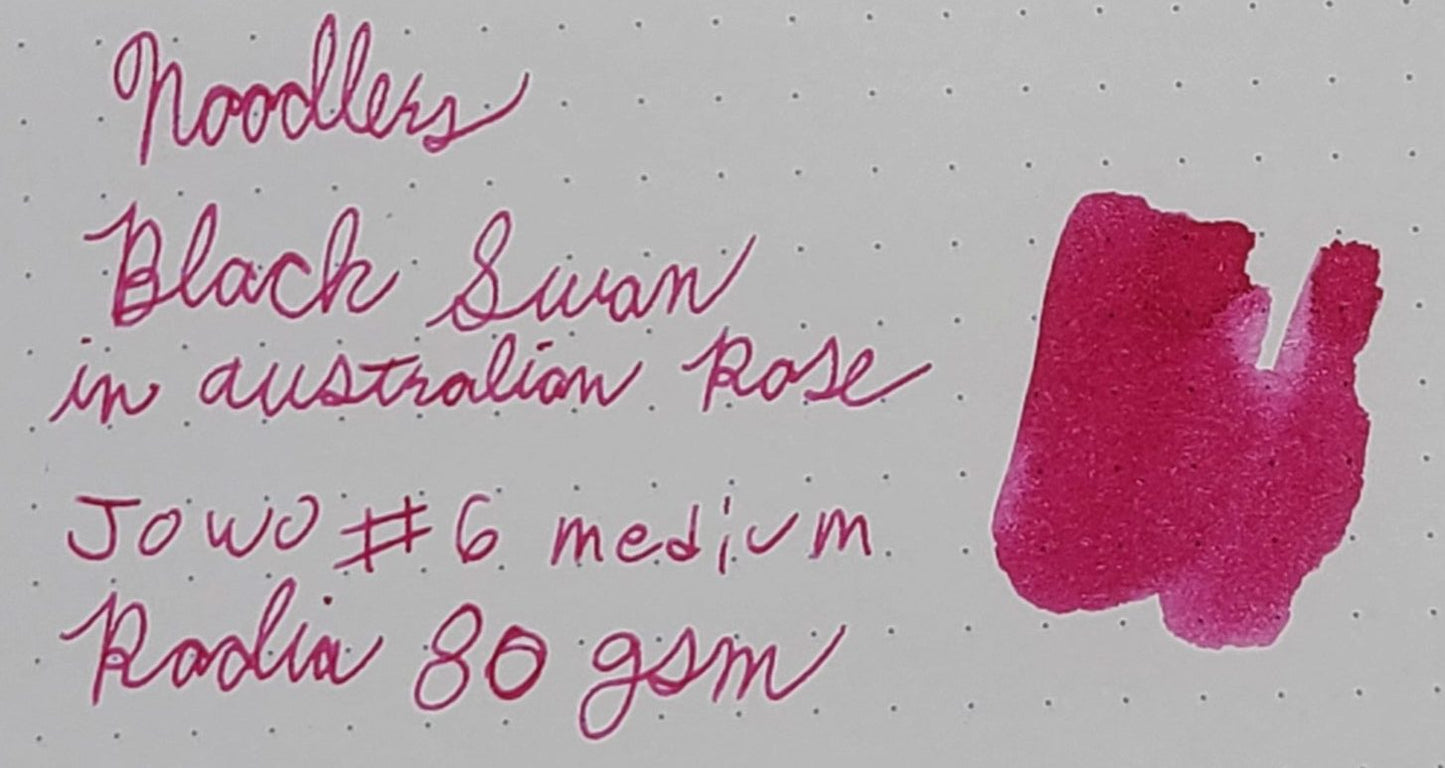 Noodlers
Black Swan
in australian Rose
Jowo #6 medium
Radia 80 gsm